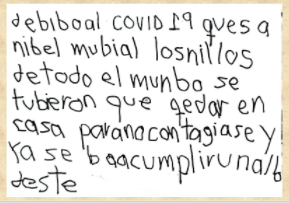 debiboal COVID 19 ques a
nibel mubial losnillos
detodo el munbo se
tubieron que qedar en
casa paranacontagiase y
Ya se baacumplirunalb
deste